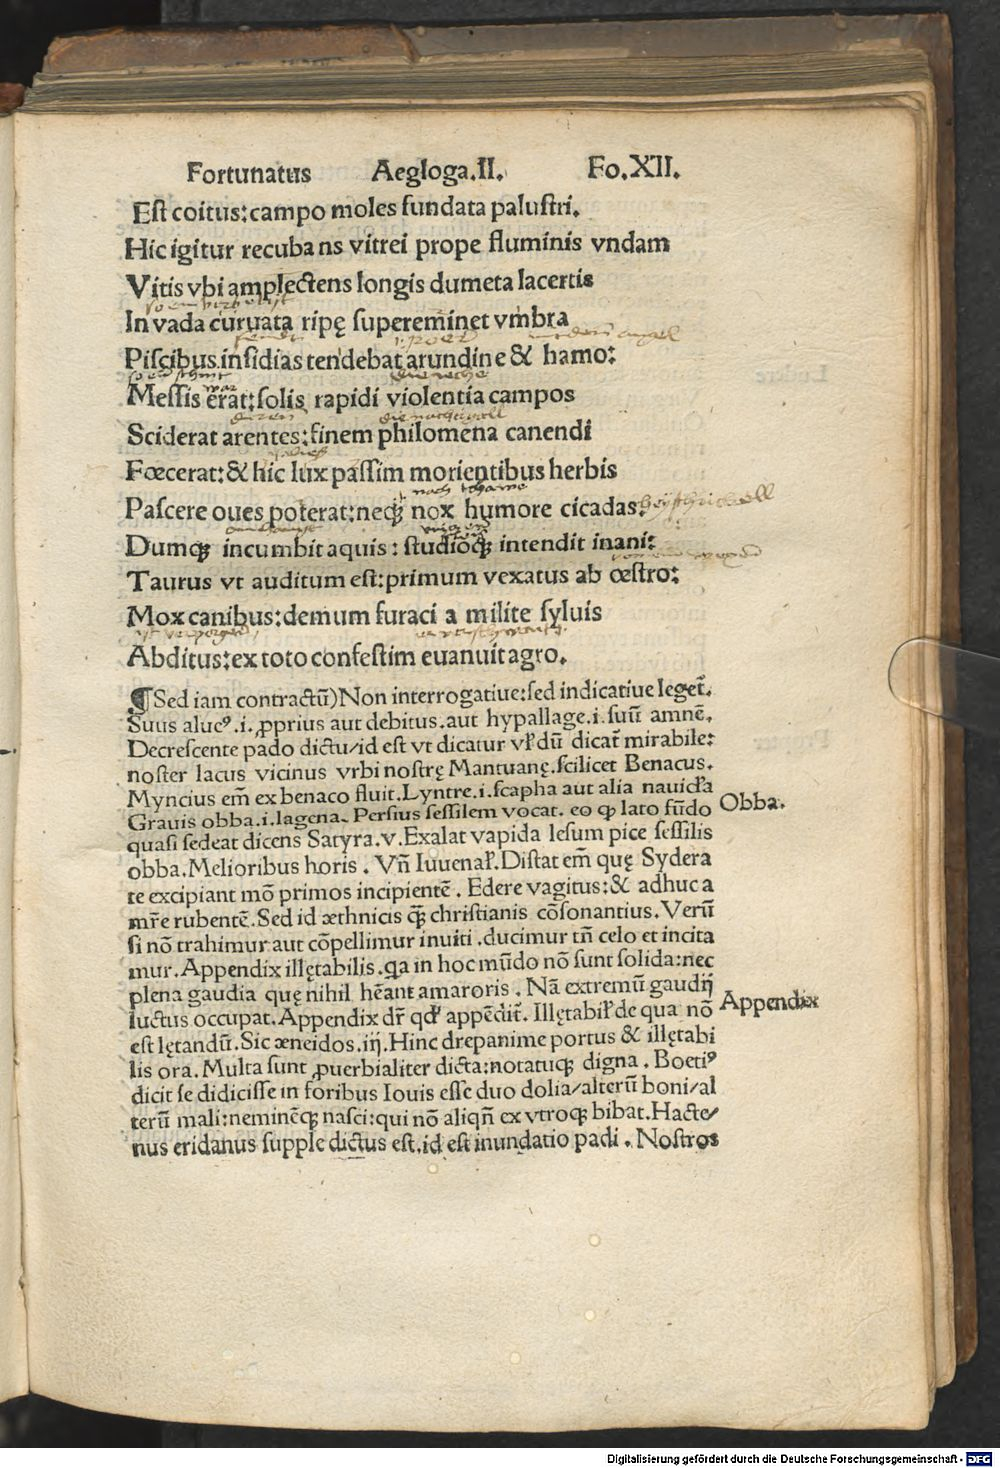 Fortunatus Aegloga.II. Fo.XII.
Eſt coitus:campo moles fundata paluſtri.
Hic igitur recubans vitrei prope fluminis vndam
Vitis vbi amplectens longis dumeta lacertis
In vada curuata ripę superem̄inet vmbra
Piſcibus inſidias tendebat arundine & hamo:
Meſſis erat:ſolis rapidi violentia campos
Sciderat arentes:finem philomena canendi
Fœcerat:& hic lux paſſim morientibus herbis
Paſcere oues poterat:neqꝫ nox humore cicadas:
Dumqꝫ incumbit aquis: ſtudioqꝫ intendit inani:
Taurus vt auditum eſt:primum vexatus ab œſtro:
Mox canibus:demum furaci a milite ſyluis
Abditus:ex toto confeſtim euanuit agro.
¶Sed iam contractū)Non interrogatiue:ſed indicatiue leget̄.
Suus alueꝰ.i.ꝓprius aut debitus.aut hypallage.i.ſuū amnē.
Decreſcente pado dictu/id eſt vt dicatur vl̓ dū dicat̄ mirabile:
noſter lacus vicinus vrbi noſtrę Mantuanę.ſcilicet Benacus.
Myncius em̄ ex benaco fluit.Lyntre.i.ſcapha aut alia nauicl̓a
Grauis obba.i.lagena.Perſius ſeſſilem vocat. eo ꝙ lato fūdo
quaſi ſedeat dicens Satyra.v.Exalat vapida leſum pice ſeſſilis
obba.Melioribus horis. Vn̄ Iuuenal̓.Diſtat em̄ quę Sydera
te excipiant mō primos incipientē. Edere vagitus:& adhuc a
mr̄e rubentē.Sed id æthnicis ꝗ̄ꝫ chriſtianis cōſonantius.Verū
ſi nō trahimur aut cōpellimur inuiti.ducimur tn̄ celo et incita
mur.Appendix illętabilis.ꝗa in hoc mūdo nō ſunt ſolida:nec
plena gaudia quę nihil hēant amaroris. Nā extremū gaudij
luctus occupat.Appendix dr̄ qd̓ appēdit̄. Illętabil̓ de qua nō
eſt lętandū.Sic æneidos.iij.Hinc drepani me portus & illętabi
lis ora.Multa ſunt ꝓuerbialiter dicta:notatuqꝫ digna. Boetiꝰ
dicit ſe didiciſſe in foribus Iouis eſſe duo dolia/alterū boni/al
terū mali:neminēqꝫ naſci:qui nō aliqn̄ ex vtroqꝫ bibat.Hacte/
nus eridanus ſupple dictus eſt.id eſt inundatio padi. Noſtros
Obba.
Appendix
Digitalisierung gefördert durch die Deutsche Forschungsgemeinschaft - DFG